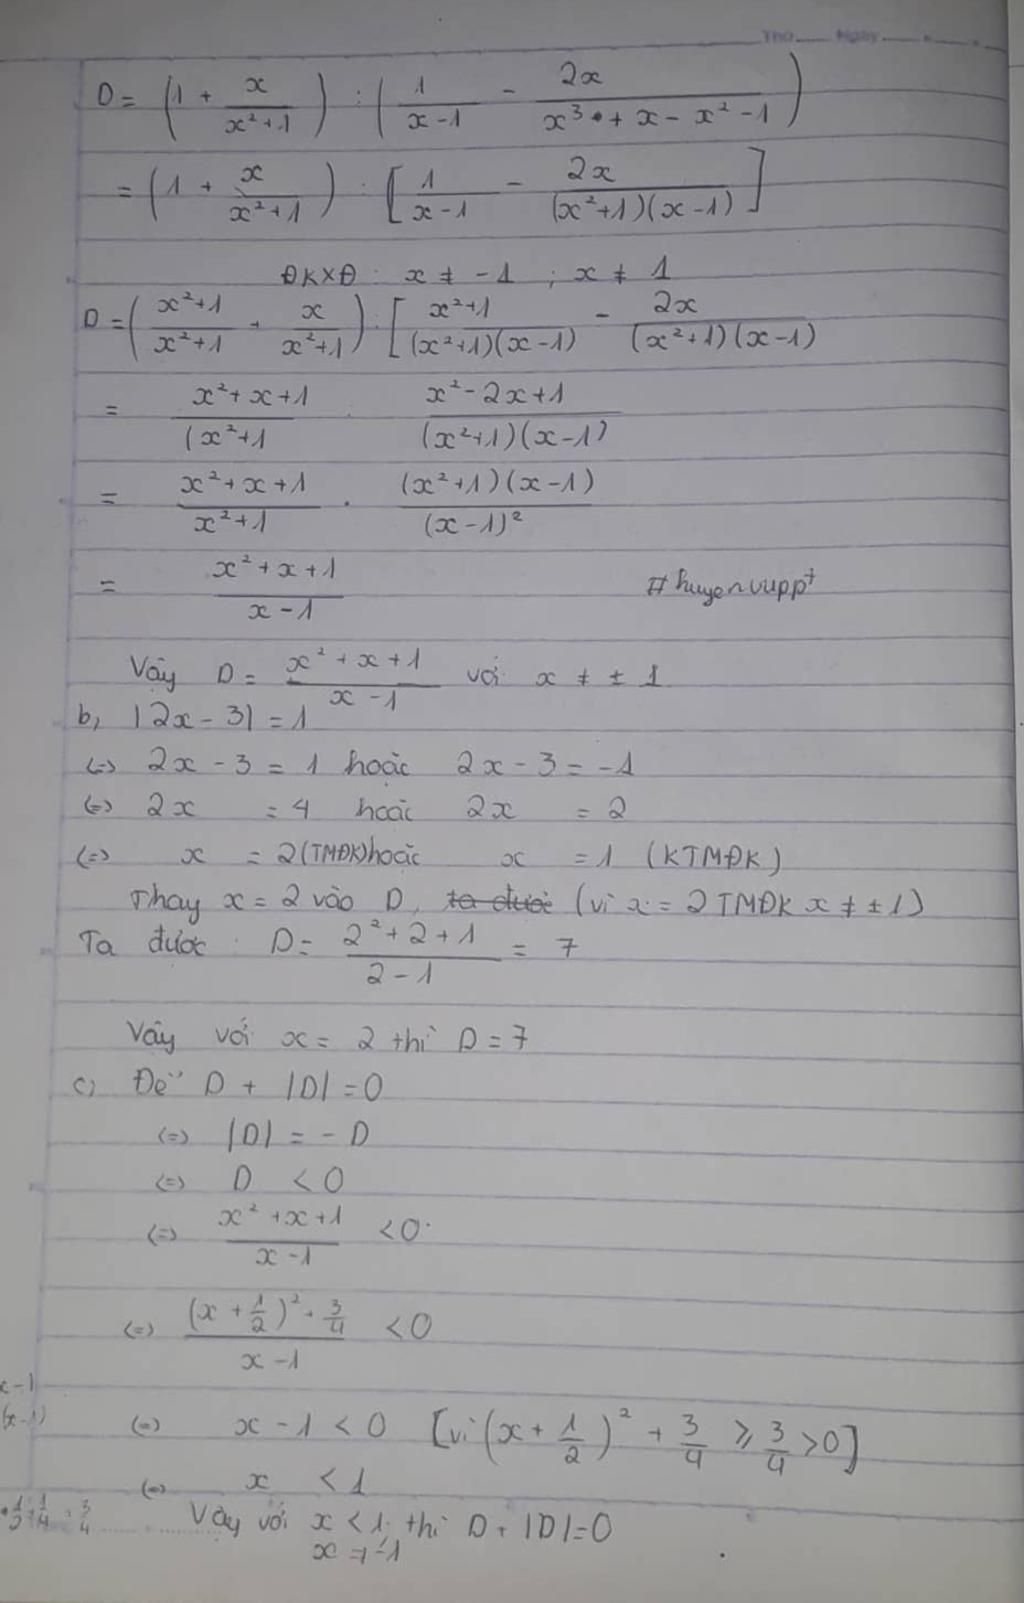 Thứ Ngày
D = (1 + x/(x²+1)) : (1/(x-1) - 2x/(x³ + x - x² - 1))
= (1 + x/(x²+1)) : [1/(x-1) - 2x/((x²+1)(x-1))]
ĐKXĐ : x ≠ -1 ; x ≠ 1
D = ((x²+1)/(x²+1) + x/(x²+1)) : [(x²+1)/((x²+1)(x-1)) - 2x/((x²+1)(x-1))
= (x²+x+1)/(x²+1 . (x²-2x+1)/((x²+1)(x-1))
= (x²+x+1)/(x²+1) . ((x²+1)(x-1))/(x-1)²
= (x²+x+1)/(x-1) #huyenvuppt
Vậy D = (x²+x+1)/(x-1) với x ≠ ± 1
b, |2x - 3| = 1
(=) 2x - 3 = 1 hoặc 2x - 3 = -1
(=) 2x = 4 hoặc 2x = 2
(=) x = 2 (TMĐK) hoặc x = 1 (KTMĐK)
Thay x = 2 vào D, ta được (vì x = 2 TMĐK x ≠ ±1)
Ta được : D = (2²+2+1)/(2-1) = 7
Vậy với x = 2 thì D = 7
c) Để D + |D| = 0
(=) |D| = - D
(=) D < 0
(=) (x²+x+1)/(x-1) < 0
(=) ((x + 1/2)² + 3/4)/(x-1) < 0
x-1
(x-1) (=) x - 1 < 0 [vì (x + 1/2)² + 3/4 ⩾ 3/4 > 0]
(=) x < 1
Vậy với x < 1 thì D + |D| = 0
x ≠ -1